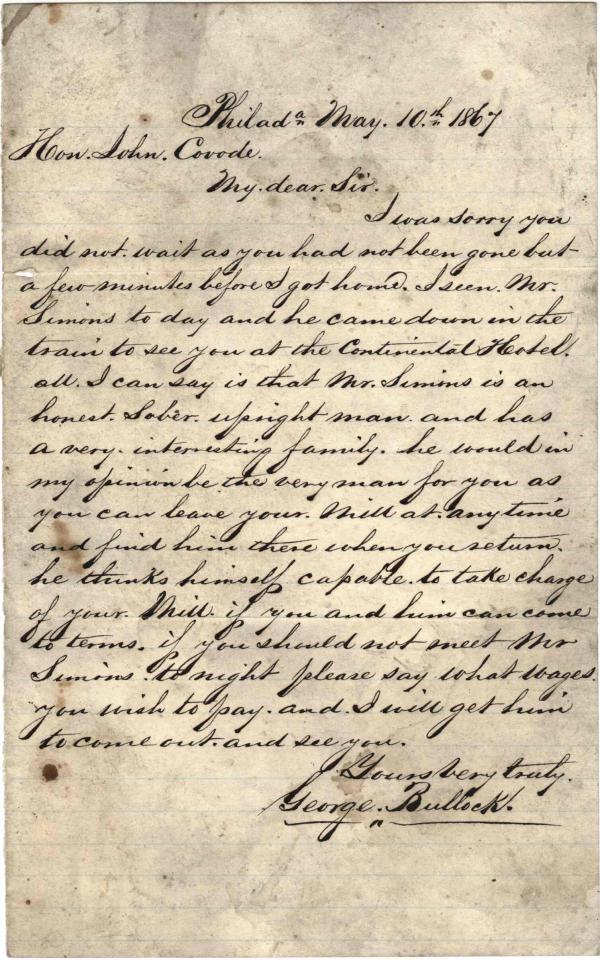 Philad.ª May. 10.th 1867
Hon. John. Covode.
My. dear. Sir.
I was sorry you
did not. wait as you had not been gone but
a few minutes before I got home. I seen. Mr.
Simons to day and he came down in the
train to see you at the Continental Hotel.
all. I can say is that Mr. Simons is an
honest. Sober. upright man. and has
a very. interresting family. he would in
my opinion be the very man for you as
you can leave your. Mill at. any time
and find him there when you return.
he thinks himself capable. to take charge
of your. Mill. if you and him can come
to terms. if you should not meet Mr
Simons. to night please say what wages.
you wish to pay. and. I will get him
to come out. and see you.
Yours very truly.
George. Bullock.